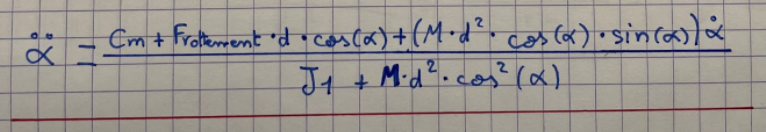 α̈ = (Cm + Frottement · d · cos(α) + (M · d² · cos(α) · sin(α)) α̇) / (J1 + M · d² · cos²(α))